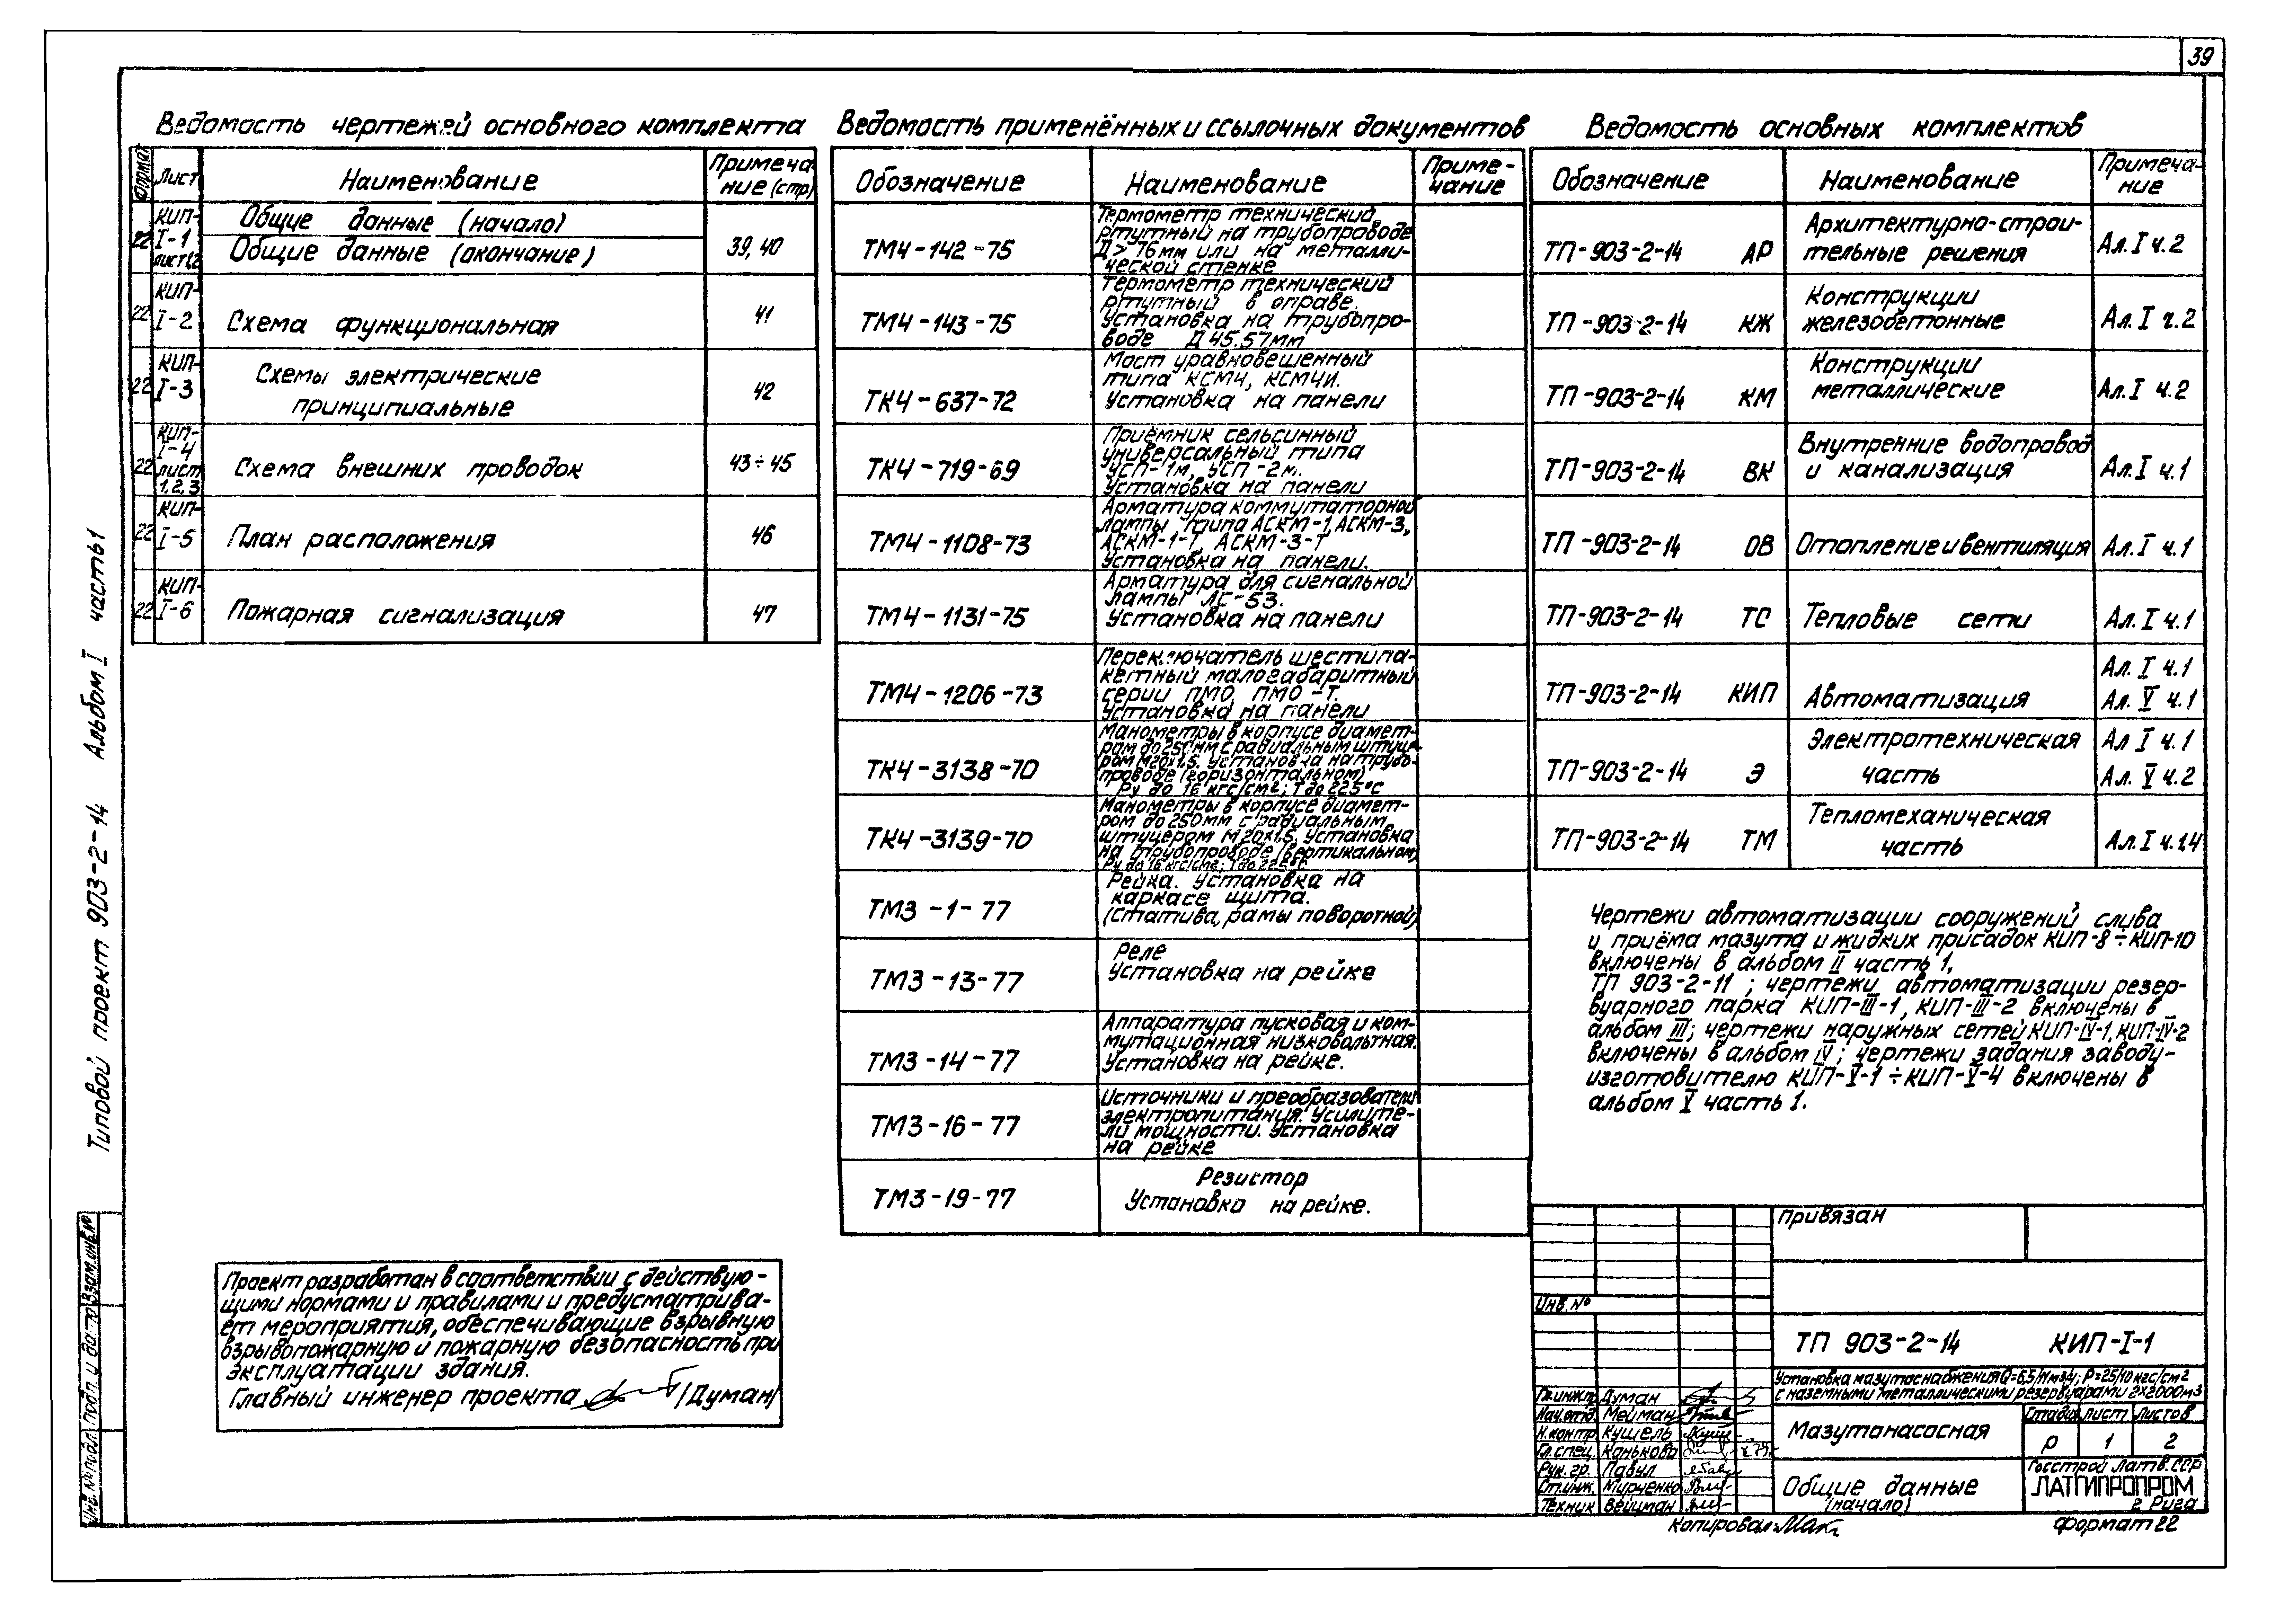 39
Ведомость чертежей основного комплекта
Формат
Лист
Наименование
Примеча-
ние (стр)
22
КИП-
I-1
лист1,2
Общие данные (начало)
Общие данные (окончание)
39, 40
22
КИП-
I-2
Схема функциональная
41
22
КИП-
I-3
Схемы электрические
принципиальные
42
22
КИП-
I-4
лист
1,2,3
Схема внешних проводок
43÷45
22
КИП-
I-5
План расположения
46
22
КИП-
I-6
Пожарная сигнализация
47
Ведомость применённых и ссылочных документов
Обозначение
Наименование
Приме-
чание
ТМ4-142-75
Термометр технический
ртутный на трубопроводе
Д>76мм или на металли-
ческой стенке
ТМ4-143-75
Термометр технический
ртутный в оправе.
Установка на трубопро-
воде Д 45.57мм
ТК4-637-72
Мост уравновешенный
типа КСМ4, КСМ4И.
Установка на панели
ТК4-719-69
Приёмник сельсинный
универсальный типа
УСП-1м, УСП-2м.
Установка на панели
ТМ4-1108-73
Арматура коммутаторной
лампы типа АСКМ-1, АСКМ-3,
АСКМ-1-Т, АСКМ-3-Т
Установка на панели.
ТМ4-1131-75
Арматура для сигнальной
лампы ЛС-53.
Установка на панели
ТМ4-1206-73
Переключатель шестипа-
кетный малогабаритный
серии ПМО, ПМО-Т.
Установка на панели
ТК4-3138-70
Манометры в корпусе диамет-
ром до 250мм с радиальным штуце-
ром М20х1,5. Установка на трубо-
проводе (горизонтальном)
Ру до 16 кгс/см²; Т до 225°С
ТК4-3139-70
Манометры в корпусе диамет-
ром до 250мм с радиальным
штуцером М20х1,5. Установка
на трубопроводе (вертикальном)
Ру до 16 кгс/см²; Т до 225°С
ТМ3-1-77
Рейка. Установка на
каркасе щита.
(Статива, рамы поворотной)
ТМ3-13-77
Реле
Установка на рейке
ТМ3-14-77
Аппаратура пусковая и ком-
мутационная низковольтная.
Установка на рейке.
ТМ3-16-77
Источники и преобразователи
электропитания. Усилите-
ли мощности. Установка
на рейке
ТМ3-19-77
Резистор
Установка на рейке.
Ведомость основных комплектов
Обозначение
Наименование
Примеча-
ние
ТП-903-2-14 АР
Архитектурно-строи-
тельные решения
Ал. I ч.2
ТП-903-2-14 КЖ
Конструкции
железобетонные
Ал. I ч.2
ТП-903-2-14 КМ
Конструкции
металлические
Ал. I ч.2
ТП-903-2-14 ВК
Внутренние водопровод
и канализация
Ал. I ч.1
ТП-903-2-14 ОВ
Отопление и вентиляция
Ал. I ч.1
ТП-903-2-14 ТС
Тепловые сети
Ал. I ч.1
ТП-903-2-14 КИП
Автоматизация
Ал. I ч.1
Ал. V ч.1
ТП-903-2-14 Э
Электротехническая
часть
Ал I ч.1
Ал. V ч.2
ТП-903-2-14 ТМ
Тепломеханическая
часть
Ал. I ч.1,4
Чертежи автоматизации сооружений слива
и приёма мазута и жидких присадок КИП-8÷КИП-10
включены в альбом II часть 1,
ТП 903-2-11 ; чертежи автоматизации резер-
вуарного парка КИП-III-1, КИП-III-2 включены в
альбом III; чертежи наружных сетей КИП-IV-1, КИП-IV-2
включены в альбом IV; чертежи задания заводу-
изготовителю КИП-V-1÷КИП-V-4 включены в
альбом V часть 1.
Типовой проект 903-2-14 Альбом I часть 1
Инв.№ подл.
Подп. и дата
Взам.инв.№
Проект разработан в соответствии с действую-
щими нормами и правилами и предусматрива-
ет мероприятия, обеспечивающие взрывную
взрывопожарную и пожарную безопасность при
эксплуатации здания.
Главный инженер проекта /Думан/
Привязан
Инв.№
ТП 903-2-14 КИП-I-1
Установка мазутоснабжения Q=6,5/11м3/ч; Р=25/10кгс/см2
с наземными металлическими резервуарами 2х2000м3
Гл.инж.пр. Думан
Нач.отд. Мейман
Н.контр. Кушель
Гл.спец. Канькова
Рук.гр. Павул
Ст.инж. Мирченко
Техник Вейцман
Мазутонасосная
Стадия Лист Листов
Р 1 2
Общие данные
(начало)
Госстрой Латв.ССР
ЛАТГИПРОПРОМ
г. Рига
Копировал:
Формат 22